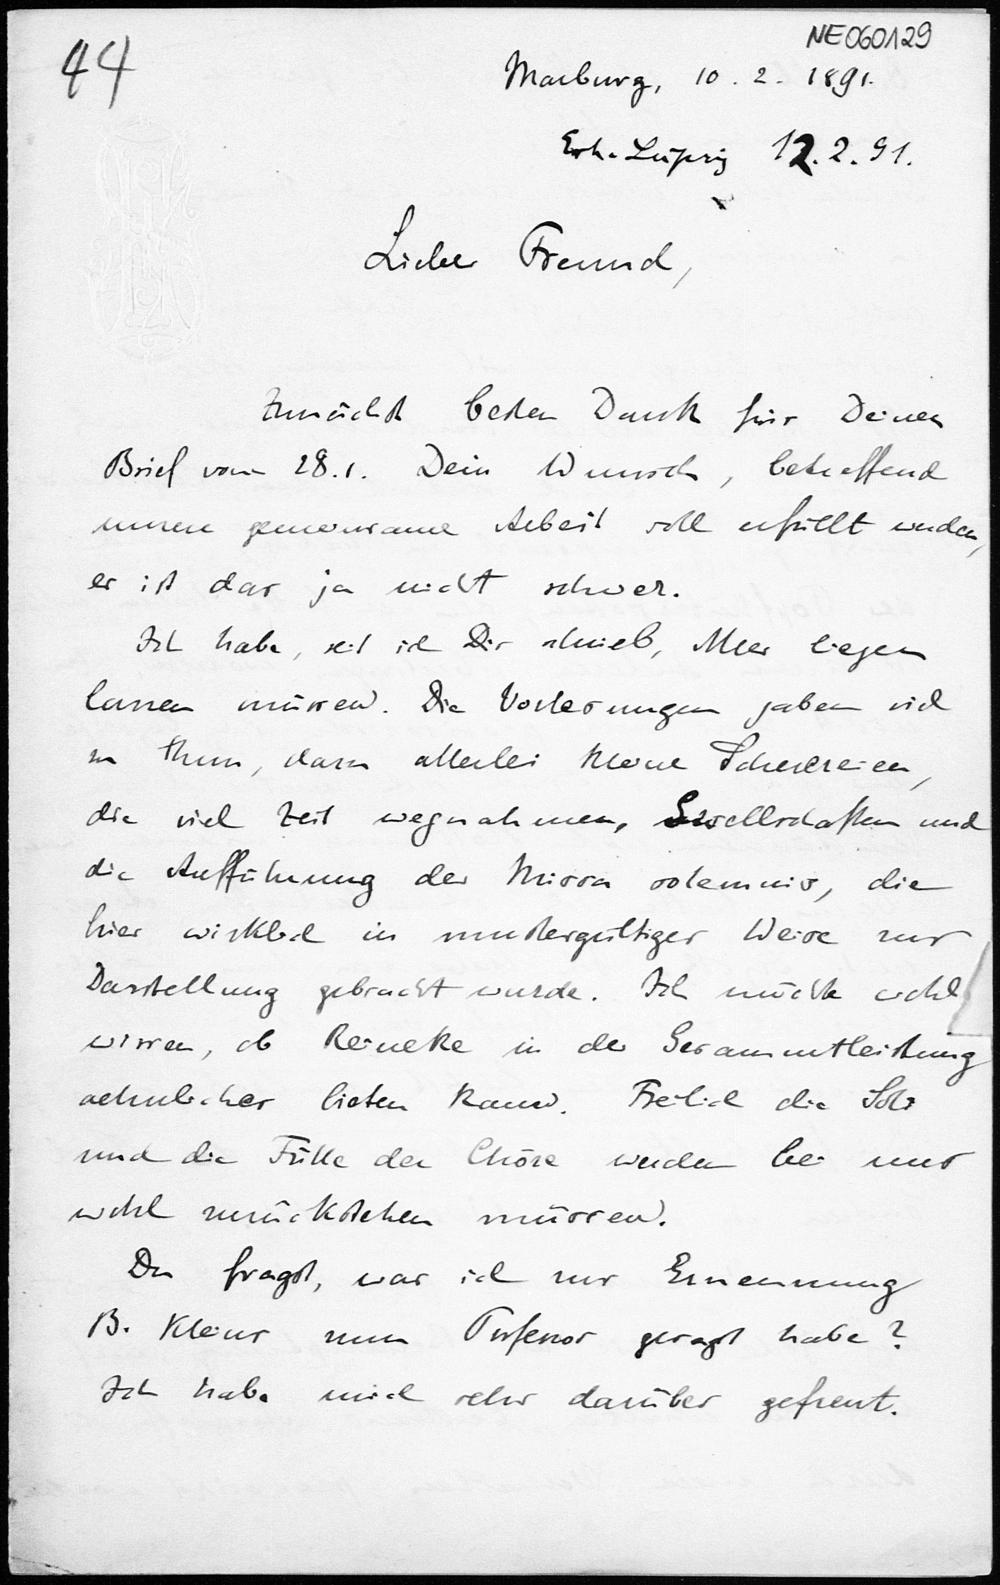 44
NE060129
Marburg, 10. 2. 1891.
Erh. Leipzig 12.2.91.
Lieber Freund,
Zunächst besten Dank für Deinen
Brief vom 28.1. Dein Wunsch, betreffend
unsere gemeinsame Arbeit soll erfüllt werden,
es ist das ja nicht schwer.
Ich habe, seit ich Dir schrieb, Alles liegen
lassen müssen. Die Vorlesungen gaben viel
zu thun, dazu allerlei kleine Scherereien,
die viel Zeit wegnahmen, Gesellschaften und
die Aufführung der Missa solemnis, die
hier wirklich in mustergültiger Weise zur
Darstellung gebracht wurde. Ich möchte wohl
wissen, ob Reineke in der Gesammtleistung
aehnliches bieten kann. Freilich die Soli
und die Fülle der Chöre werden bei uns
wohl zurückstehen müssen.
Du fragst, was ich zur Ernennung
B. Kleins zum Professor gesagt habe?
Ich habe mich sehr darüber gefreut.